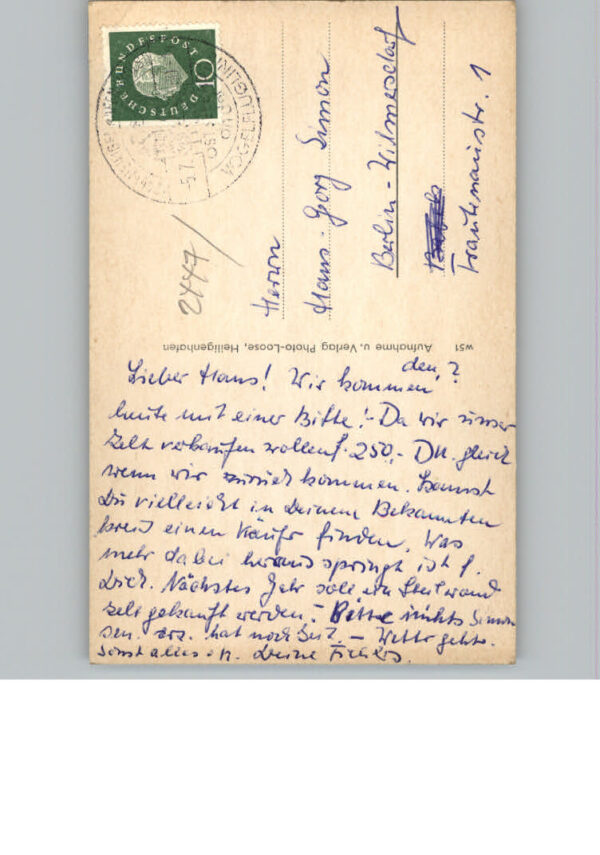 DEUTSCHE BUNDESPOST
10
VOGELFLUGLINIE
5.7.
2447/
Herrn
Hans-Georg Simon
Berlin-Wilmersdorf
Trautenaustr. 1
W51 Aufnahme u. Verlag Photo-Loose, Heiligenhafen
Lieber Hans! Wir kommen den ?
heute mit einer Bitte! - Da wir unser
Zelt verkaufen wollen f. 250,- DM. gleich
wenn wir zurück kommen. Kannst
Du vielleicht in Deinem Bekannten
kreis einen Käufer finden. Was
mehr dabei herausspringt ist f.
Dich. Nächstes Jahr soll ein Steilwand
zelt gekauft werden. - Bitte nichts Simon
sen. hat noch Zeit. - Wetter geht.
Sonst alles Deine